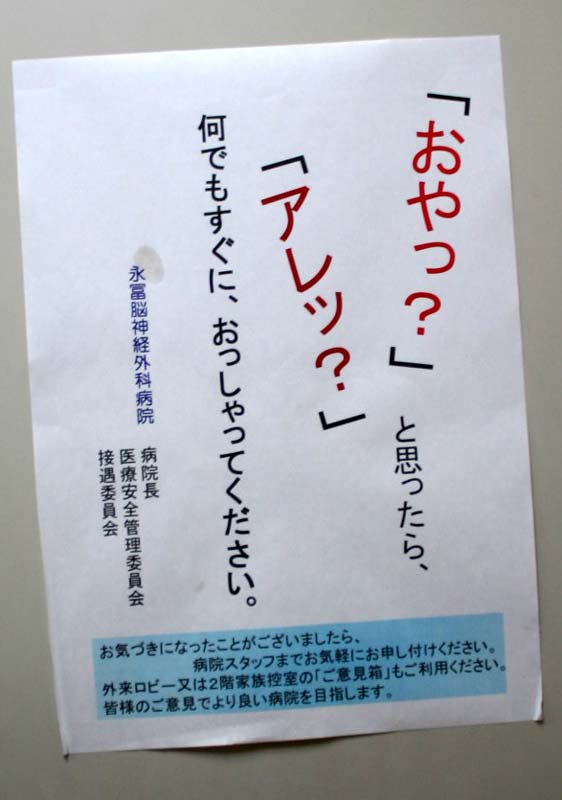 「おやっ？」と思ったら、
「アレッ？」
何でもすぐに、おっしゃってください。
永冨脳神経外科病院
病院長
医療安全管理委員会
接遇委員会
お気づきになったことがございましたら、
病院スタッフまでお気軽にお申し付けください。
外来ロビー又は2階家族控室の「ご意見箱」もご利用ください。
皆様のご意見でより良い病院を目指します。